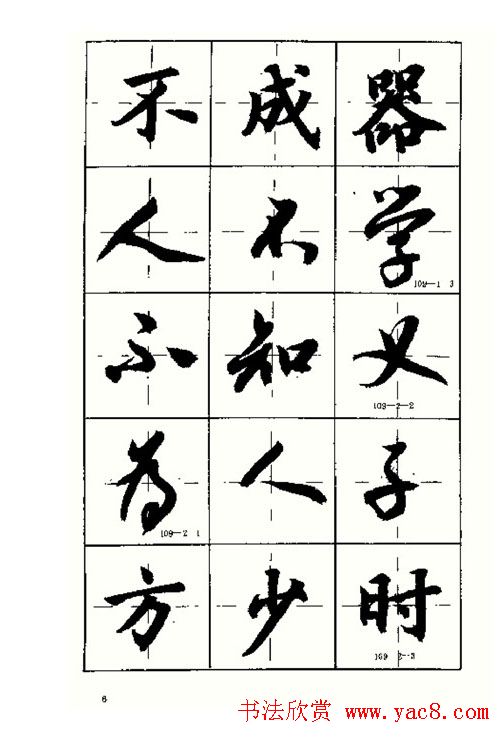 不成器
人不学
109—1 3
不知义
109—2—2
为人子
109—2 1
方少时
109 2—3
6
书法欣赏 www.yac8.com